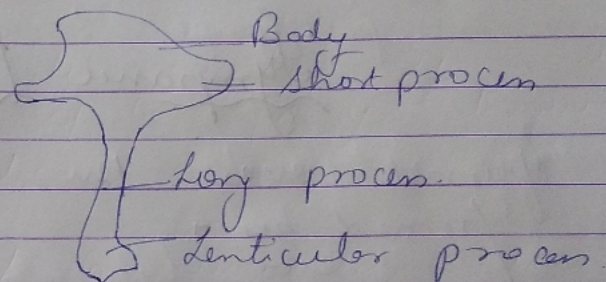 Body
short process
Long process.
Lenticular process.